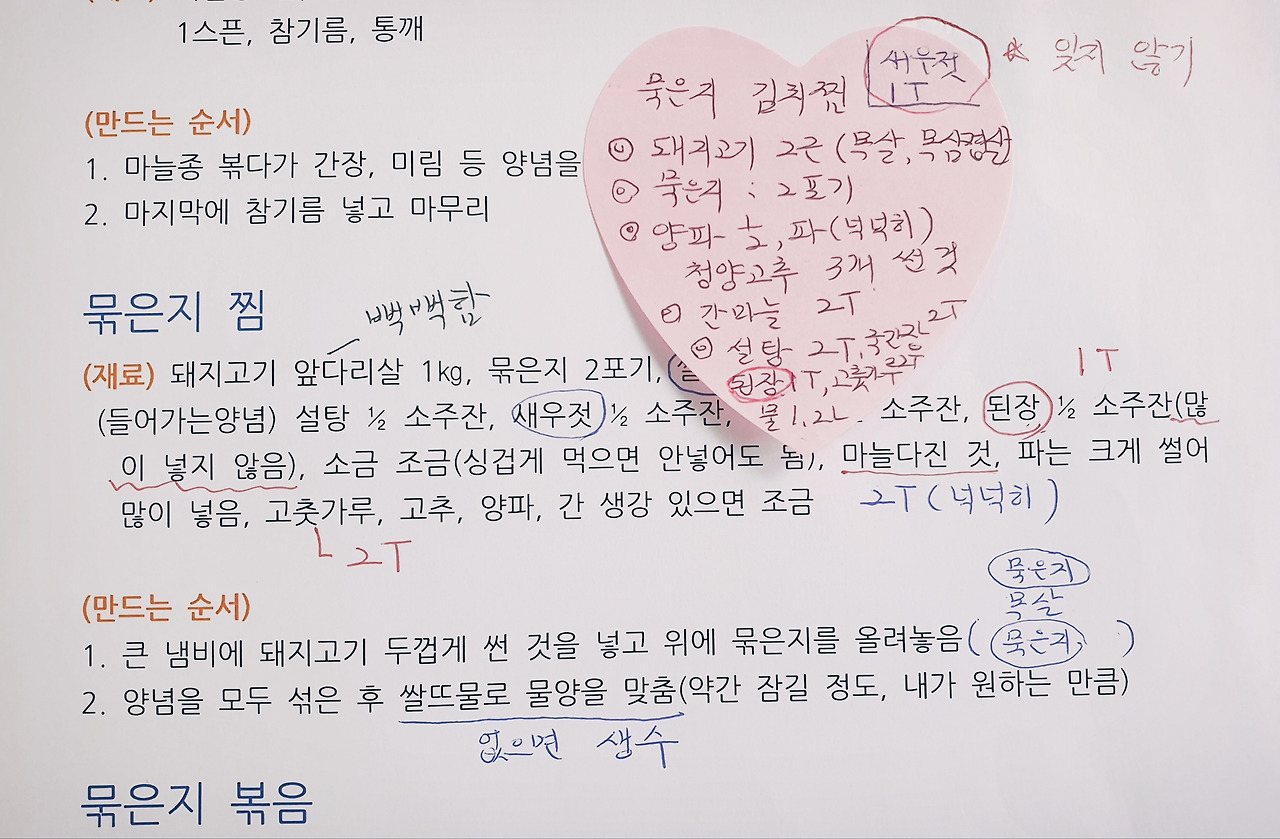 1스푼, 참기름, 통깨
(만드는 순서)
1. 마늘종 볶다가 간장, 미림 등 양념을
2. 마지막에 참기름 넣고 마무리
새우젓
1T
* 잊지 않기
묵은지 김치찜
돼지고기 2근 (목살,
묵은지 : 2포기
양파 ½, 파 (넉넉히)
청양고추 3개 썬 것
간마늘 2T
설탕 2T, 국간장 2T
된장 1T, 고춧가루 2T
물 1.2L
묶은지 찜
빡빡함
(재료) 돼지고기 앞다리살 1kg, 묶은지 2포기,
1T
(들어가는양념) 설탕 ½ 소주잔, 새우젓 ½ 소주잔, 소주잔, 된장 ½ 소주잔(많
이 넣지 않음), 소금 조금(싱겁게 먹으면 안넣어도 됨), 마늘다진 것, 파는 크게 썰어
많이 넣음, 고춧가루, 고추, 양파, 간 생강 있으면 조금
2T (넉넉히)
2T
(만드는 순서)
묵은지
목살
1. 큰 냄비에 돼지고기 두껍게 썬 것을 넣고 위에 묶은지를 올려놓음 (묵은지)
2. 양념을 모두 섞은 후 쌀뜨물로 물양을 맞춤(약간 잠길 정도, 내가 원하는 만큼)
없으면 생수
묶은지 볶음